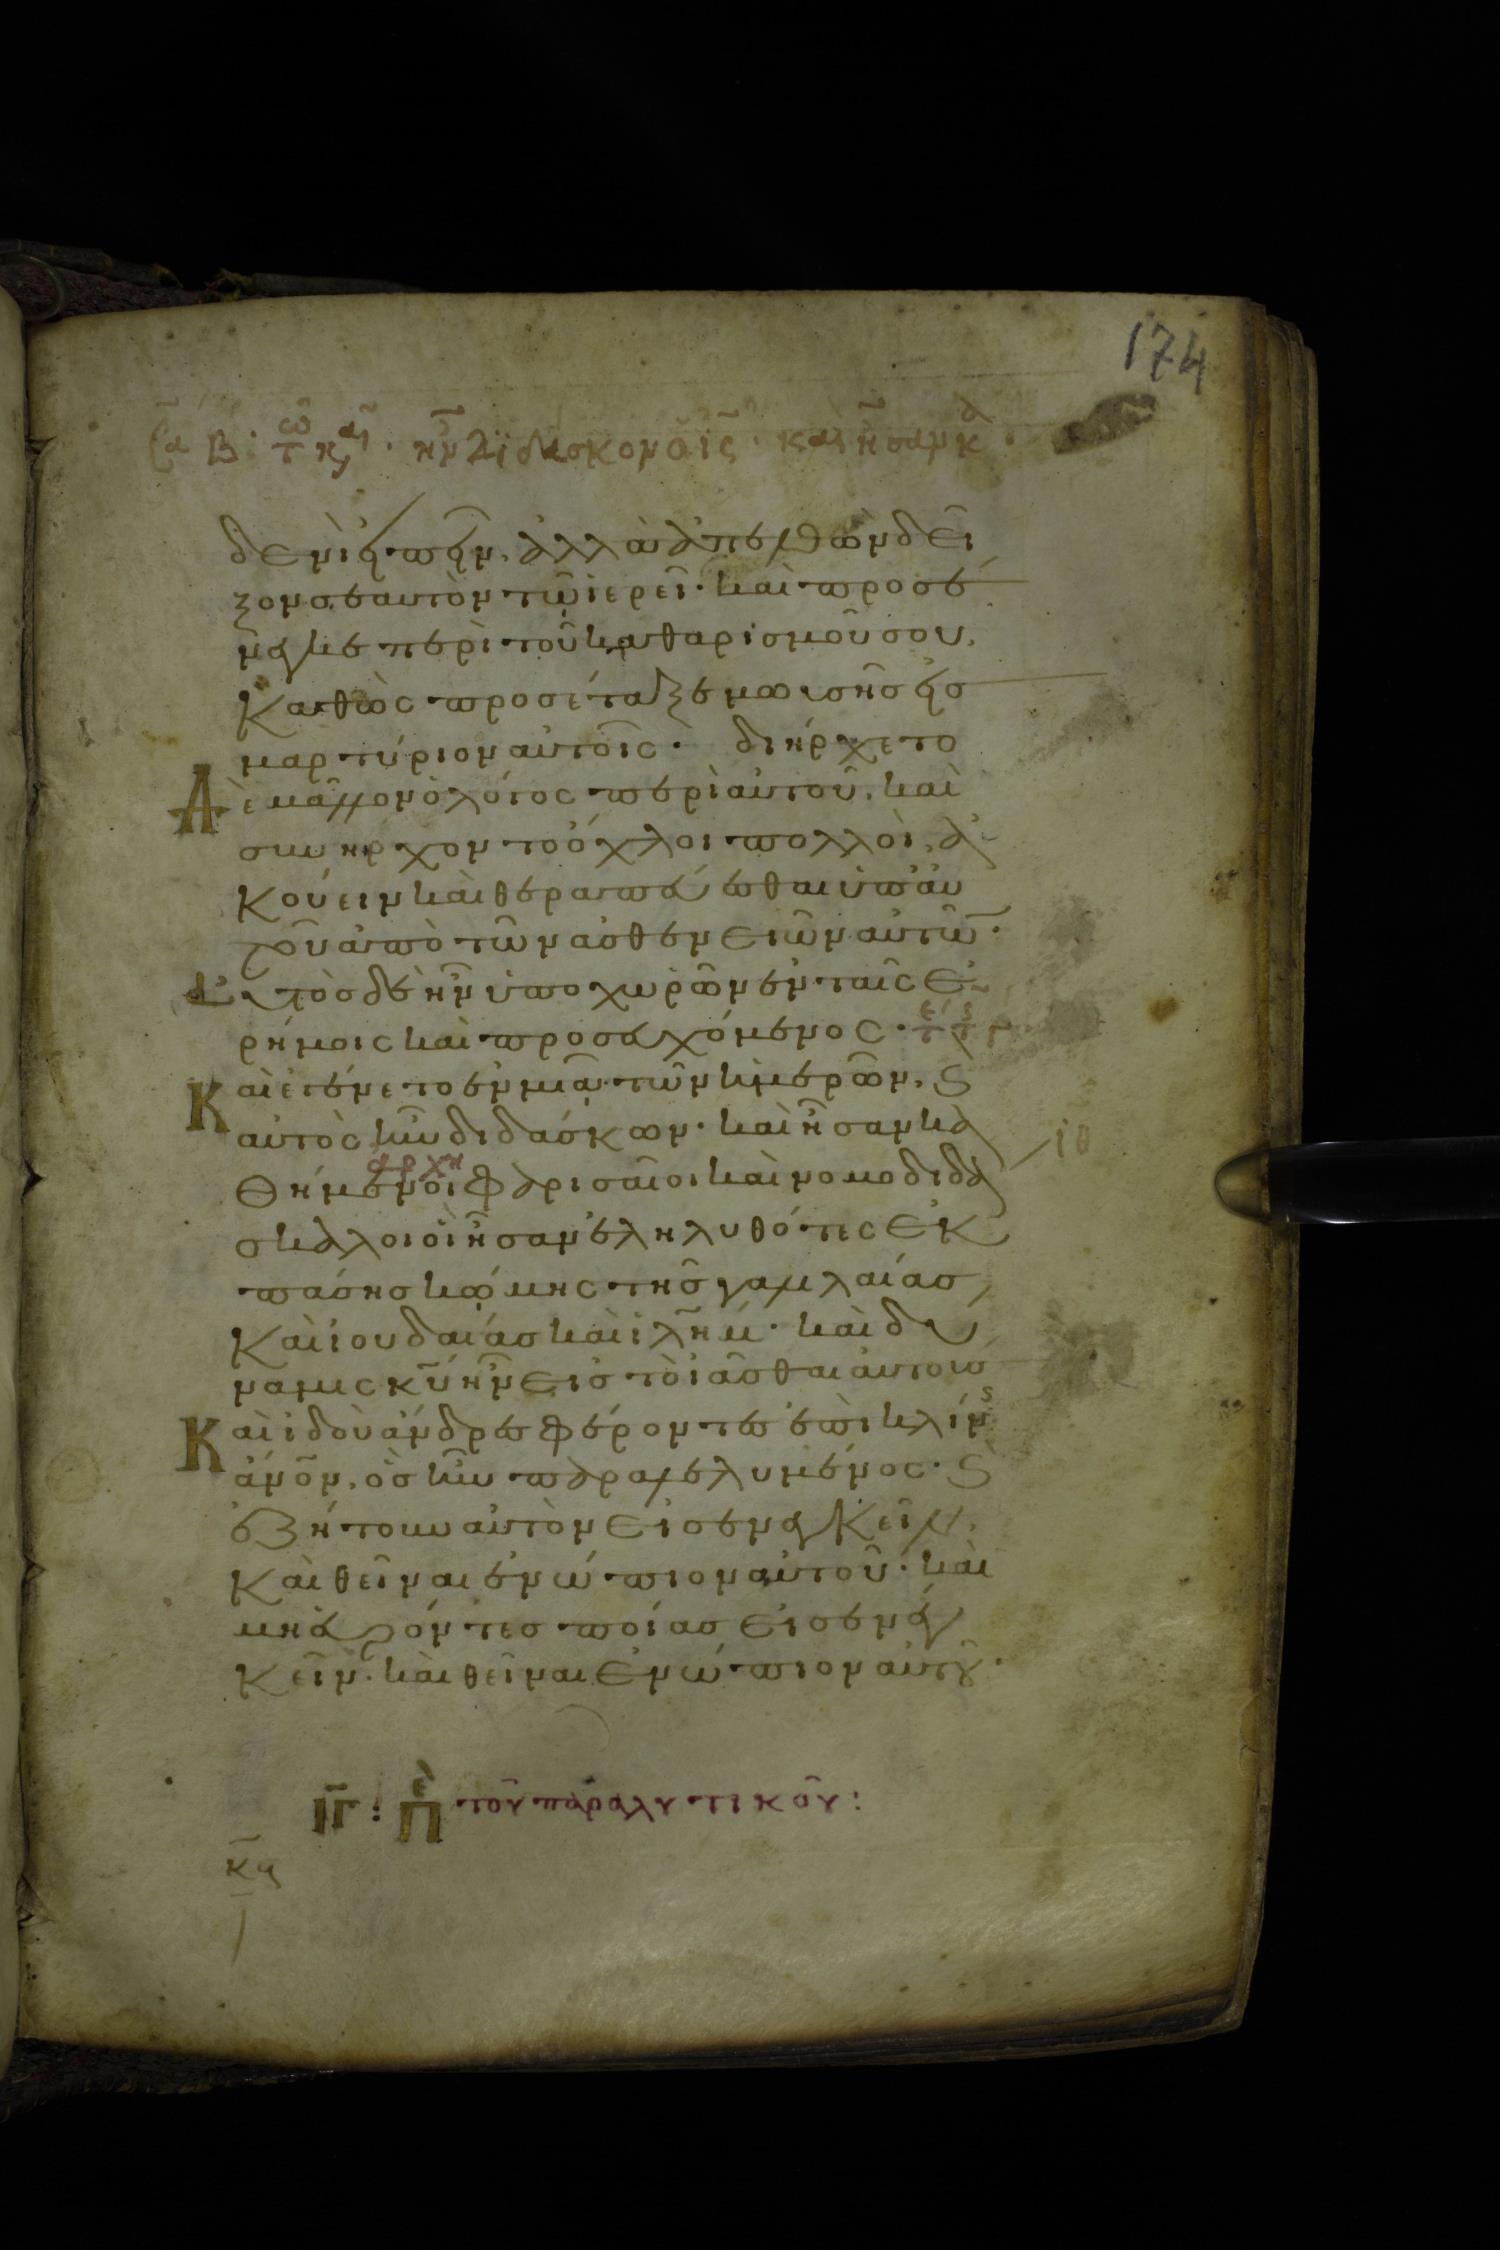 174
δενὶ εἰπεῖν. ἀλλὰ ἀπελθὼν δεῖ
ξον σεαυτὸν τῶ ἱερεῖ· καὶ προσέ
νεγκε περὶ τοῦ καθαρισμοῦ σου,
Καθὼς προσέταξε μωισῆς εἰσ
μαρτύριον αὐτοῖς· διήρχετο
Δὲ μᾶλλον ὁ λόγος περὶ αὐτοῦ, καὶ
συνήρχοντο ὄχλοι πολλοὶ, ἀ
κούειν καὶ θεραπεύεσθαι ὑπ' αὐ
τοῦ ἀπὸ τῶν ἀσθενειῶν αὐτῶ̅·
Αὐτὸσ δὲ ἦν ὑποχωρῶν ἐν ταῖς ἐ
ρήμοις καὶ προσευχόμενος·
Καὶ ἐγένετο ἐν μιᾶ τῶν ἡμερῶν, ϗ
αὐτὸς ἦν διδάσκων· καὶ ἦσαν κα
αρχη
θήμενοι φαρισαῖοι καὶ νομοδιδά
σκαλοι οἳ ἦσαν ἐληλυθότες ἐκ
πάσησ κώμης τῆσ γαλιλαίασ
Καὶ ἰουδαίασ καὶ ἰλῆμ· καὶ δύ
ναμις κ̅υ̅ ἦν εἰσ τὸ ἰᾶσθαι αὐτούσ
Καὶ ἰδοὺ ἄνδρεσ φέροντεσ ἐπὶ κλίνησ
ἄνο̅ν, ὃσ ἦν παραλελυμένος· ϗ
ἐζήτουν αὐτὸν εἰσενεγκεῖν,
Καὶ θεῖναι ἐνώπιον αὐτοῦ· καὶ
μὴ εὑρόντεσ ποίασ εἰσενεγ
κεῖν· καὶ θεῖναι ἐνώπιον αὐτοῦ·
ΙΓ: Πε τοῦ παραλυτικοῦ: